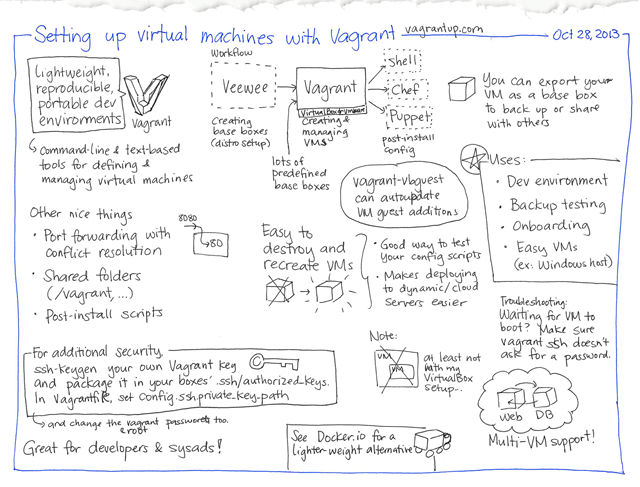 Setting up virtual machines with Vagrant
vagrantup.com
Oct 28, 2013
Lightweight,
reproducible,
portable dev
environments
Vagrant
Command-line & text-based
tools for defining &
managing virtual machines
Workflow
Veewee
Creating
base boxes
(distro setup)
Vagrant
Creating &
managing
VMs
lots of
predefined
base boxes
Shell
Chef
Puppet
post-install
config
You can export your
VM as a base box
to back up or share
with others
vagrant-vbguest
can autoupdate
VM guest additions
Uses:
• Dev environment
• Backup testing
• Onboarding
• Easy VMs
(ex: Windows host)
Other nice things
• Port forwarding with
conflict resolution
8080
80
• Shared folders
(/vagrant, ...)
• Post-install scripts
Easy to
destroy and
recreate VMs
• Good way to test
your config scripts
• Makes deploying
to dynamic/cloud
servers easier
Troubleshooting:
Waiting for VM to
boot? Make sure
vagrant ssh doesn't
ask for a password.
For additional security,
ssh-keygen your own Vagrant key
and package it in your boxes' .ssh/authorized_keys.
In Vagrantfile, set config.ssh.private_key_path
and change the vagrant password too.
& root
Note:
VM
VM
at least not
with my
VirtualBox
setup...
Web
DB
Multi-VM support!
Great for developers & sysads!
See Docker.io for a
lighter-weight alternative